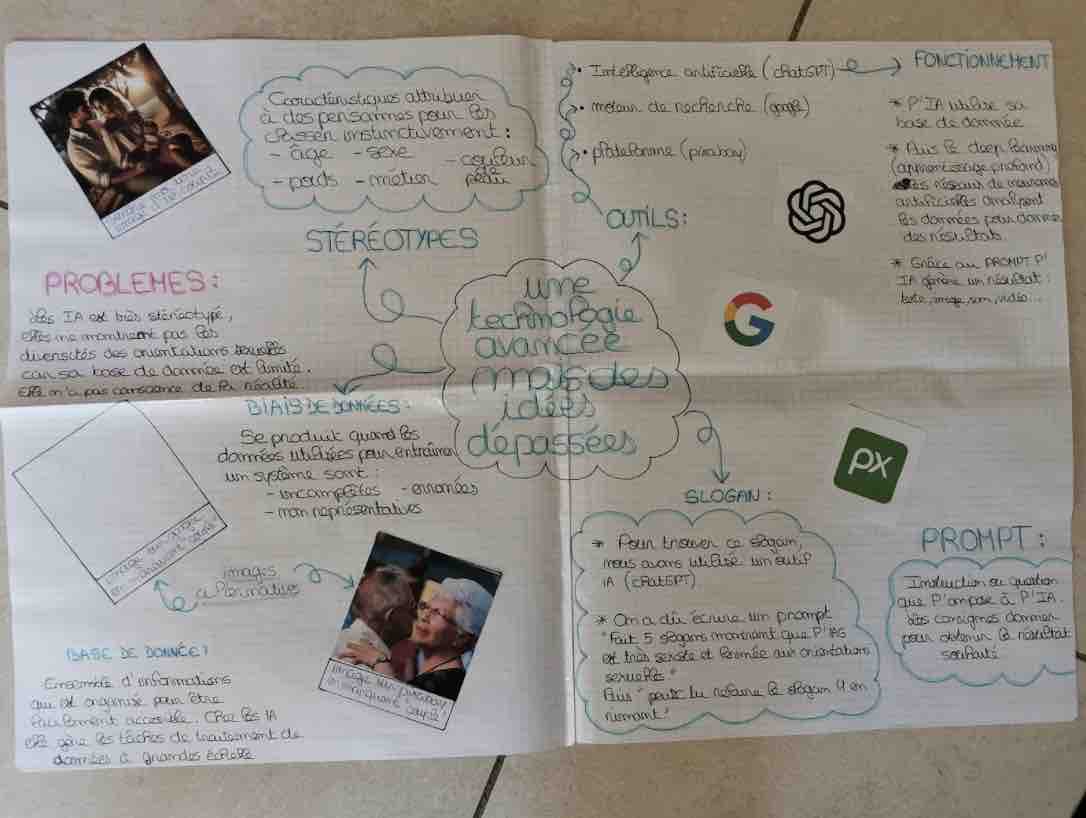 Caractéristiques attribuer
à des personnes pour les
classer instinctivement :
- âge - sexe - couleur de peau
- poids - métier
STÉRÉOTYPES
PROBLEMES :
Les IA est très stéréotype,
elles ne montrent pas les
diversités des orientations sexuelles
car sa base de donnée est limité.
Elle n'a pas conscience de la réalité
BIAIS DE DONNÉES :
Se produit quand les
données utilisées pour entraîner
un système sont :
- incomplètes - erronées
- non représentatives
images
alternatives
image sur pixabay
en marquant "couple"
BASE DE DONNÉE :
Ensemble d'informations
qui est organisé pour être
facilement accessible. Chez les IA
elle gère les tâches de traitement de
données à grandes échelle
une
technologie
avancée
mais des
idées
dépassées
• Intelligence artificielle (chatGPT)
• moteur de recherche (google)
• plateforme (pixabay)
OUTILS :
FONCTIONNEMENT
* l'IA utilise sa
base de donnée
* Puis le deep learning
(apprentissage profond)
les réseaux de neurones
artificielles analysent
les données pour donner
des résultats.
* Grâce au PROMPT l'
IA génère un résultat :
texte, image, son, vidéo...
G
px
SLOGAN :
* Pour trouver ce slogan,
nous avons utilisé un outil
IA (chatGPT)
* On a dû écrire un prompt
"Fait 5 slogans montrant que l'IAG
est très sexiste et fermée aux orientations
sexuelles"
Puis "peux tu refaire le slogan 4 en
rimant"
PROMPT :
Instruction ou question
que l'on pose à l'IA.
Des consignes donner
pour obtenir le résultat
souhaité